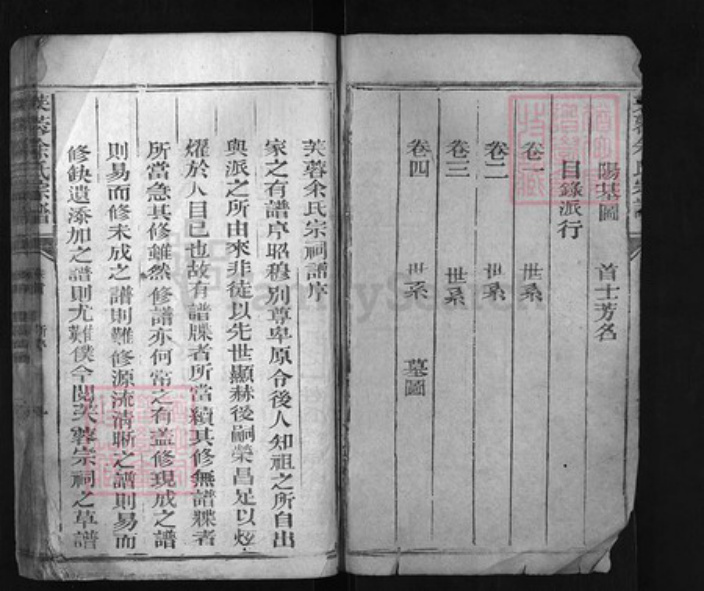 陽基圖 首士芳名
目錄派行
卷一 世系
卷二 世系
卷三 世系
卷四 世系 墓圖
芙蓉余氏宗祠譜序
家之有譜序昭穆別尊卑原令後人知祖之所自出
與派之所由來非徒以先世顯赫後嗣榮昌足以炫
燿於人目已也故有譜牒者所當續其修無譜牒者
所當急其修雖然修譜亦何常之有蓋修現成之譜
則易而修未成之譜則難修源流清晰之譜則易而
修缺遺添加之譜則尤難僕今閱芙蓉宗祠之草譜
芙蓉余氏宗譜